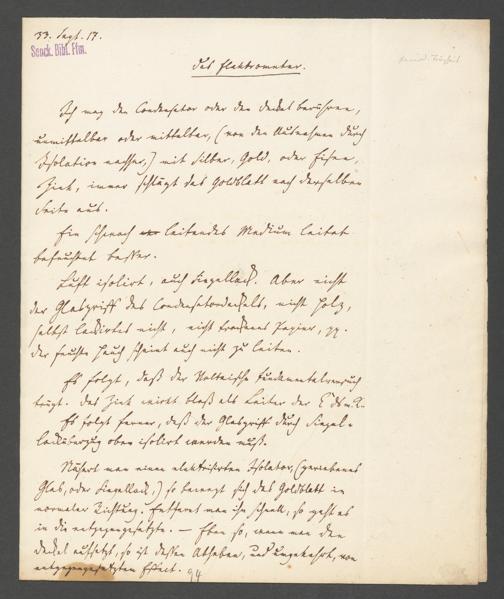 33. Sept. 17.
Senck. Bibl. Ffm.
Das Elektrometer.
Ich mag den Condensator oder den Deckel berühren,
unmittelbar oder mittelbar, (von den Ausnahmen durch
Isolation nachher,) mit Silber, Gold, oder Eisen,
Zink, immer schlägt das Goldblatt nach derselben
Seite aus.
Ein schwach leitendes Medium leitet
befeuchtet besser.
Luft isolirt, auch Siegellack. Aber nicht
der Glasgriff des Condensatordeckels, nicht Holz,
selbst lackirtes nicht, nicht trockenes Papier, pp.
der feuchte Hauch scheint auch nicht zu leiten.
Es folgt, daß der Voltaische Fundamentalversuch
trügt. Das Zink wirkt bloß als Leiter der E.
Es folgt ferner, daß der Glasgriff durch Siegel-
lacküberzug oben isolirt werden muß.
Nähert man einen elektrisirten Isolator, (geriebenes
Glas, oder Siegellack,) so bewegt sich das Goldblatt in
normaler Richtung. Entfernt man ihn schnell, so geht es
in die entgegengesetzte. — Eben so, wenn man den
Deckel aufsetzt, so ist dessen Abheben, und umgekehrt, von
entgegengesetztem Effect.
94